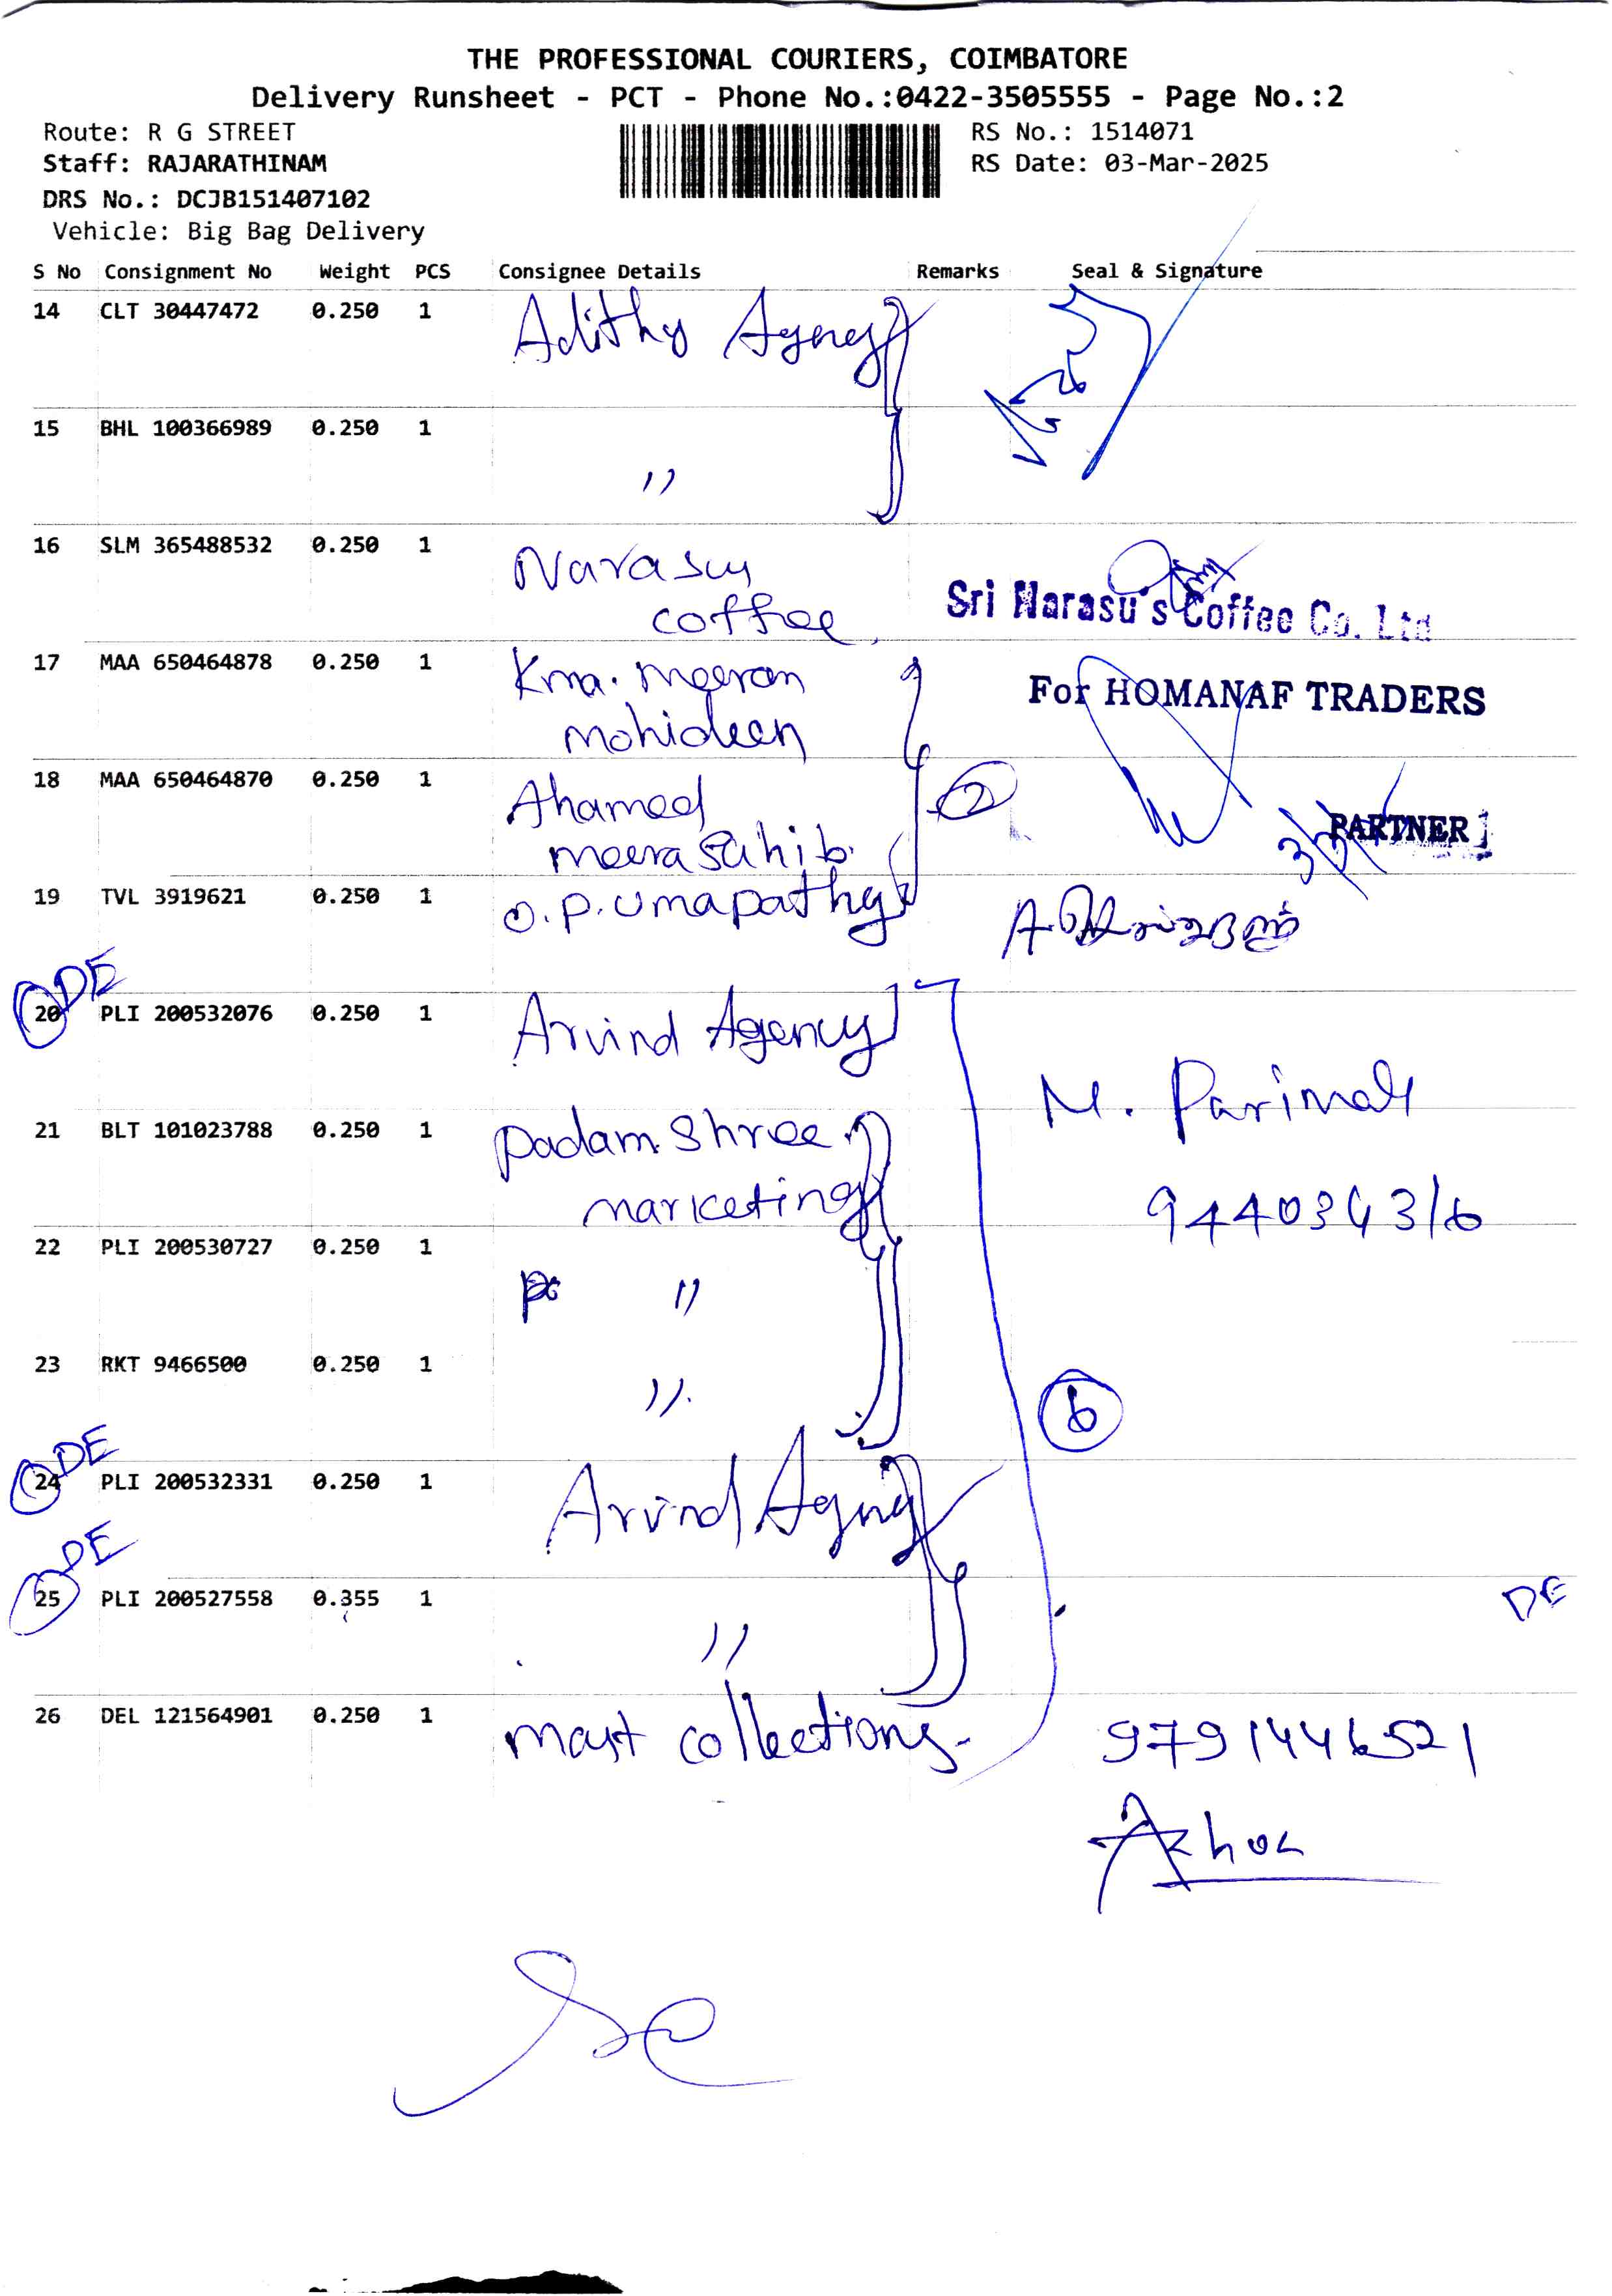 THE PROFESSIONAL COURIERS, COIMBATORE
Delivery Runsheet - PCT - Phone No.:0422-3505555 - Page No.:2
Route: R G STREET RS No.: 1514071
Staff: RAJARATHINAM RS Date: 03-Mar-2025
DRS No.: DCJB151407102
Vehicle: Big Bag Delivery
S No Consignment No Weight PCS Consignee Details Remarks Seal & Signature
14 CLT 30447472 0.250 1 Adithy Agency
15 BHL 100366989 0.250 1 "
16 SLM 365488532 0.250 1 Narasu
coffee
Sri Narasu's Coffee Co. Ltd
17 MAA 650464878 0.250 1 Kma. meeran
mohideen
For HOMANAF TRADERS
18 MAA 650464870 0.250 1 Ahameed
meera Sahib. 2
PARTNER
19 TVL 3919621 0.250 1 O.P. Umapathy
DE
20 PLI 200532076 0.250 1 Arvind Agency
M. Parimal
21 BLT 101023788 0.250 1 Padam Shree
marketing
22 PLI 200530727 0.250 1 "
23 RKT 9466500 0.250 1 "
6
DE
24 PLI 200532331 0.250 1 Arvind Agency
DE
25 PLI 200527558 0.355 1 " DE
26 DEL 121564901 0.250 1 mayt collections. 9791446521